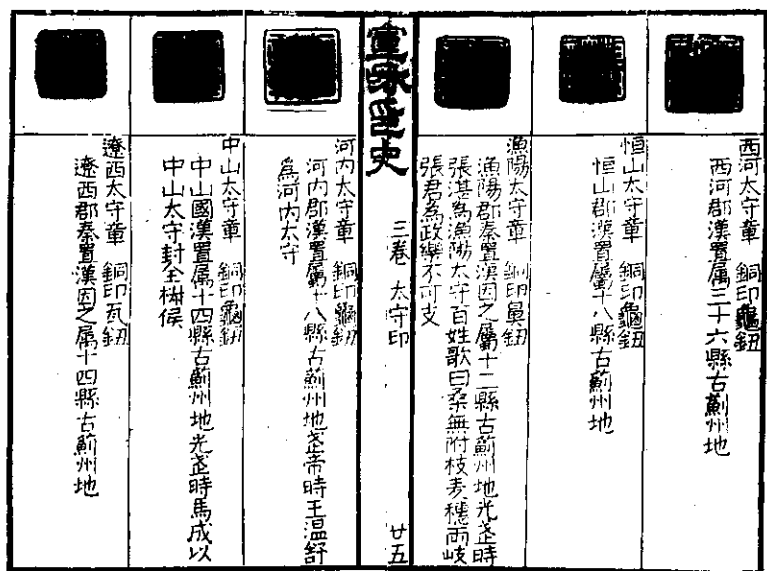 西河太守章　銅印龜鈕
西河郡漢置属三十六縣古薊州地
恒山太守章　銅印龜鈕
恒山郡漢置屬十八縣古薊州地
漁陽太守章　銅印鼻鈕
漁陽郡秦置漢因之属十二縣古薊州地光武時
張湛為漁陽太守百姓歌曰桑無附枝麦穗両岐
張君為政樂不可支
宣和印史
三卷　太守印
廿五
河内太守章　銅印龜鈕
河内郡漢置屬十八縣古薊州地武帝時王溫舒
為河内太守
中山太守章　銅印龜鈕
中山國漢置属十四縣古薊州地光武時馬成以
中山太守封全椒侯
遼西太守章　銅印瓦鈕
遼西郡秦置漢因之属十四縣古薊州地